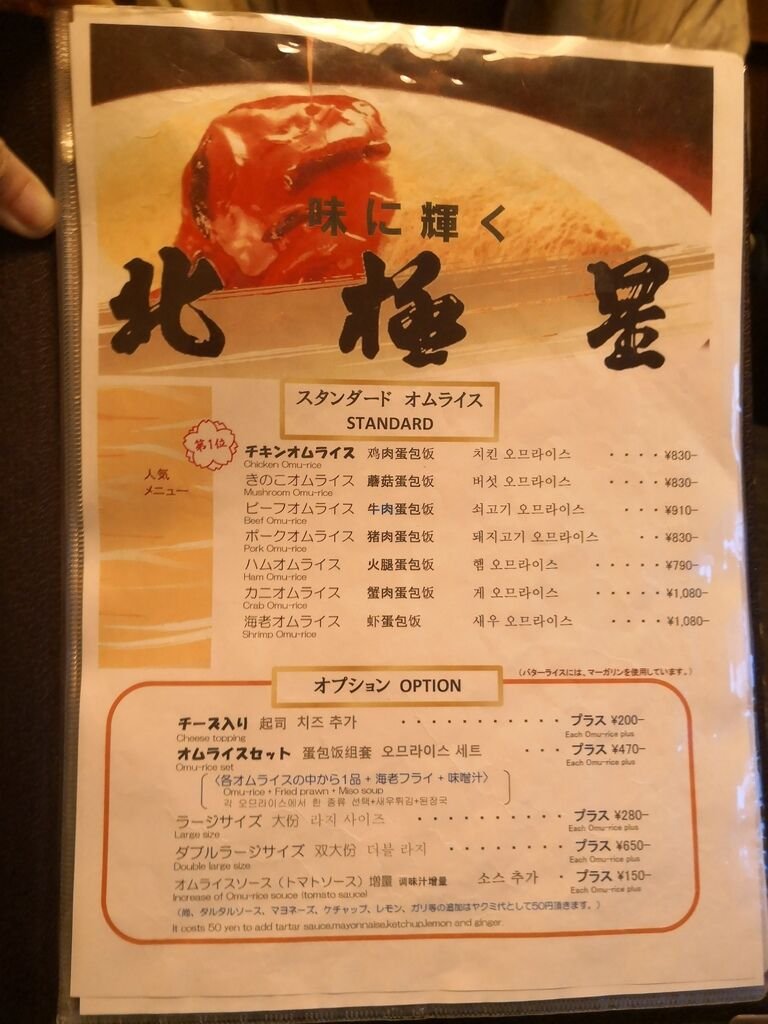 味に輝く
北極星
スタンダード オムライス
STANDARD
第1位
人気
メニュー
チキンオムライス 鸡肉蛋包饭 치킨 오므라이스 ････ ¥830-
Chicken Omu-rice
きのこオムライス 蘑菇蛋包饭 버섯 오므라이스 ････ ¥830-
Mushroom Omu-rice
ビーフオムライス 牛肉蛋包饭 쇠고기 오므라이스 ････ ¥910-
Beef Omu-rice
ポークオムライス 猪肉蛋包饭 돼지고기 오므라이스 ･･･ ¥830-
Pork Omu-rice
ハムオムライス 火腿蛋包饭 햄 오므라이스 ････ ¥790-
Ham Omu-rice
カニオムライス 蟹肉蛋包饭 게 오므라이스 ････ ¥1,080-
Crab Omu-rice
海老オムライス 虾蛋包饭 새우 오므라이스 ････ ¥1,080-
Shrimp Omu-rice
(バターライスには、マーガリンを使用しています。)
オプション OPTION
チーズ入り 起司 치즈 추가 ･･･････････ プラス ¥200-
Cheese topping Each Omu-rice plus
オムライスセット 蛋包饭组套 오므라이스 세트 ･･･ プラス ¥470-
Omu-rice set Each Omu-rice plus
〈各オムライスの中から1品 + 海老フライ + 味噌汁〉
Omu-rice + Fried prawn + Miso soup
각 오므라이스에서 한 종류 선택+새우튀김+된장국
ラージサイズ 大份 라지 사이즈 ･････････ プラス ¥280-
Large size Each Omu-rice plus
ダブルラージサイズ 双大份 더블 라지 ･･････ プラス ¥650-
Double large size Each Omu-rice plus
オムライスソース（トマトソース）増量 调味汁增量 소스 추가 ･ プラス ¥150-
Increase of Omu-rice souce (tomato sauce) Each Omu-rice plus
（尚、タルタルソース、マヨネーズ、ケチャップ、レモン、ガリ等の追加はヤクミ代として50円頂きます。）
It costs 50 yen to add tartar sauce,mayonnaise,ketchup,lemon and ginger